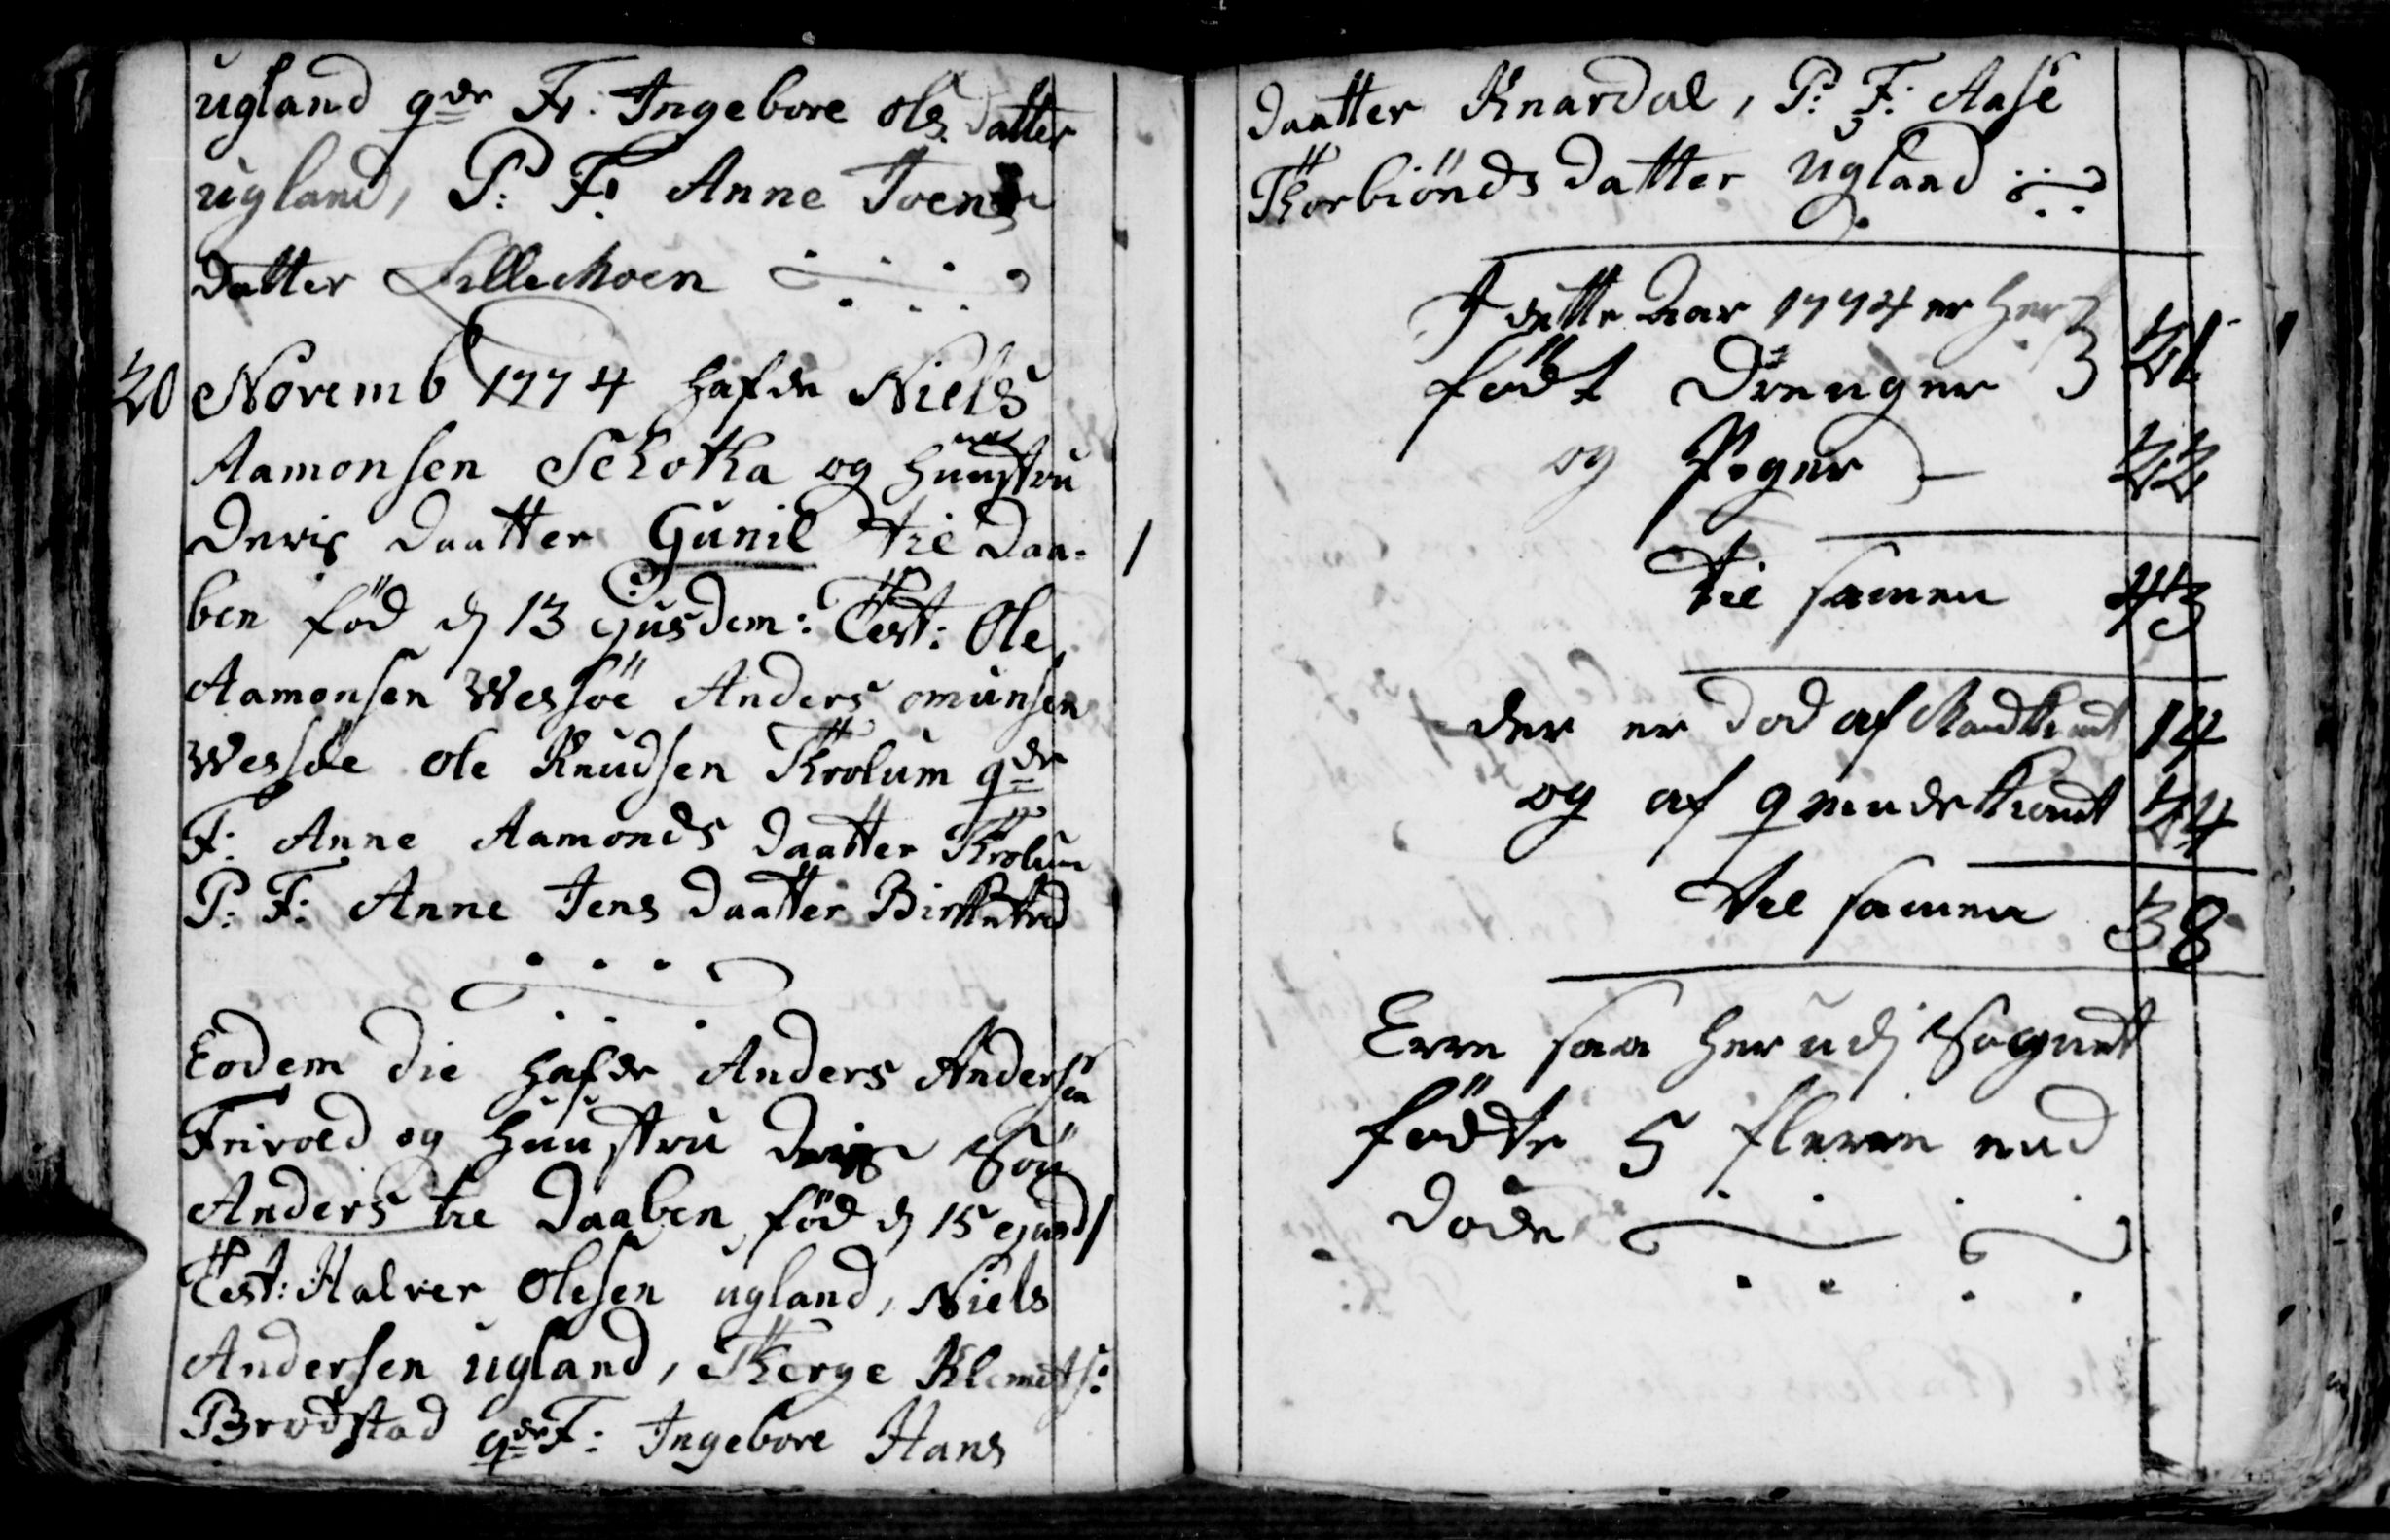 ugland qde F: Ingebore ols datter
ugland, P: F: Anne Joens
datter Lillemoen
20 Novemb 1774 hafde Niels
Aamonsen Schotha og Huustru
Deris Daatter Gunil til Daa-
ben föd d 13 ejusdem: Test: Ole
Aamonsen Wessöe Anders omunsen
Wessöe ole Knudsen Throlum qde
F: Anne Aamonds Daatter Throlum
P: F: Anne Jens Daatter
Eodem die hafde Anders Andersen
Frivold og Huustru Deris Sön
Anders til Daaben föd d 15 ejusd/
Test: Halver Olesen ugland, Niels
Andersen ugland, Therge Klemets:
Brodstad qde F: Ingebore Hans
Daatter Knardal, P: F: Aase
Thorbiönds datter Ugland
I dette Aar 1774 er her
födt Drenger 21
og Piger 22
til samen 43
der er död af Mandkiønt 14
og af qvindekiønt 24
til samen 38
Erre saa her udj Sognet
födte 5 flerre end
döde